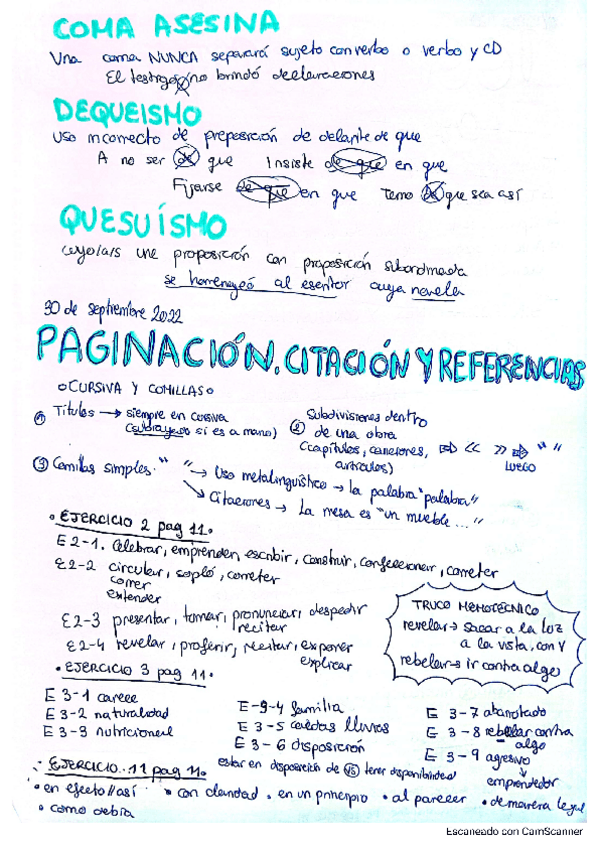 COMA ASESINA
Una coma NUNCA separará sujeto con verbo o verbo y CD
El testigo no brindó declaraciones
DEQUEISMO
Uso incorrecto de preposición de delante de que
A no ser de que Insiste de que en que
Fijarse de que en que Temo de que sea así
QUESUÍSMO
cuyo/a/s une proposición con proposición subordinada
se homenajeó al escritor cuya novela
30 de septiembre 2022
PAGINACIÓN, CITACIÓN Y REFERENCIAS
CURSIVA Y COMILLAS
① Títulos → siempre en cursiva
(subrayado si es a mano)
② Subdivisiones dentro
de una obra
(capítulos, canciones, ⇨ << >> ⇨ " "
artículos) LUEGO
③ Comillas simples " " → Uso metalingüístico → la palabra "palabra"
→ Citaciones → La mesa es "un mueble ..."
• EJERCICIO 2 pag 11.
E 2-1. celebrar, emprender, escribir, construir, confeccionar, cometer
E 2-2 circular, sopló, cometer
correr
extender
E 2-3 presentar, tomar, pronunciar, despedir
recitar
E 2-4 revelar, proferir, recitar, exponer
explicar
TRUCO MEMOTÉCNICO
revelar → sacar a la luz
a la vista, con V
rebelar → ir contra algo
• EJERCICIO 3 pag 11.
E 3-1 carece
E 3-2 naturalidad
E 3-3 nutricional
E-3-4 familia
E 3-5 caídas lluvias
E 3-6 disposición
estar en disposición de vs tener disponibilidad
E 3-7 abarrotado
E 3-8 rebelar contra
algo
E 3-9 agresivo
emprendedor
• EJERCICIO 11 pag 11.
• en efecto//así • con claridad • en un principio • al parecer • de manera legal
• como debía
Escaneado con CamScanner